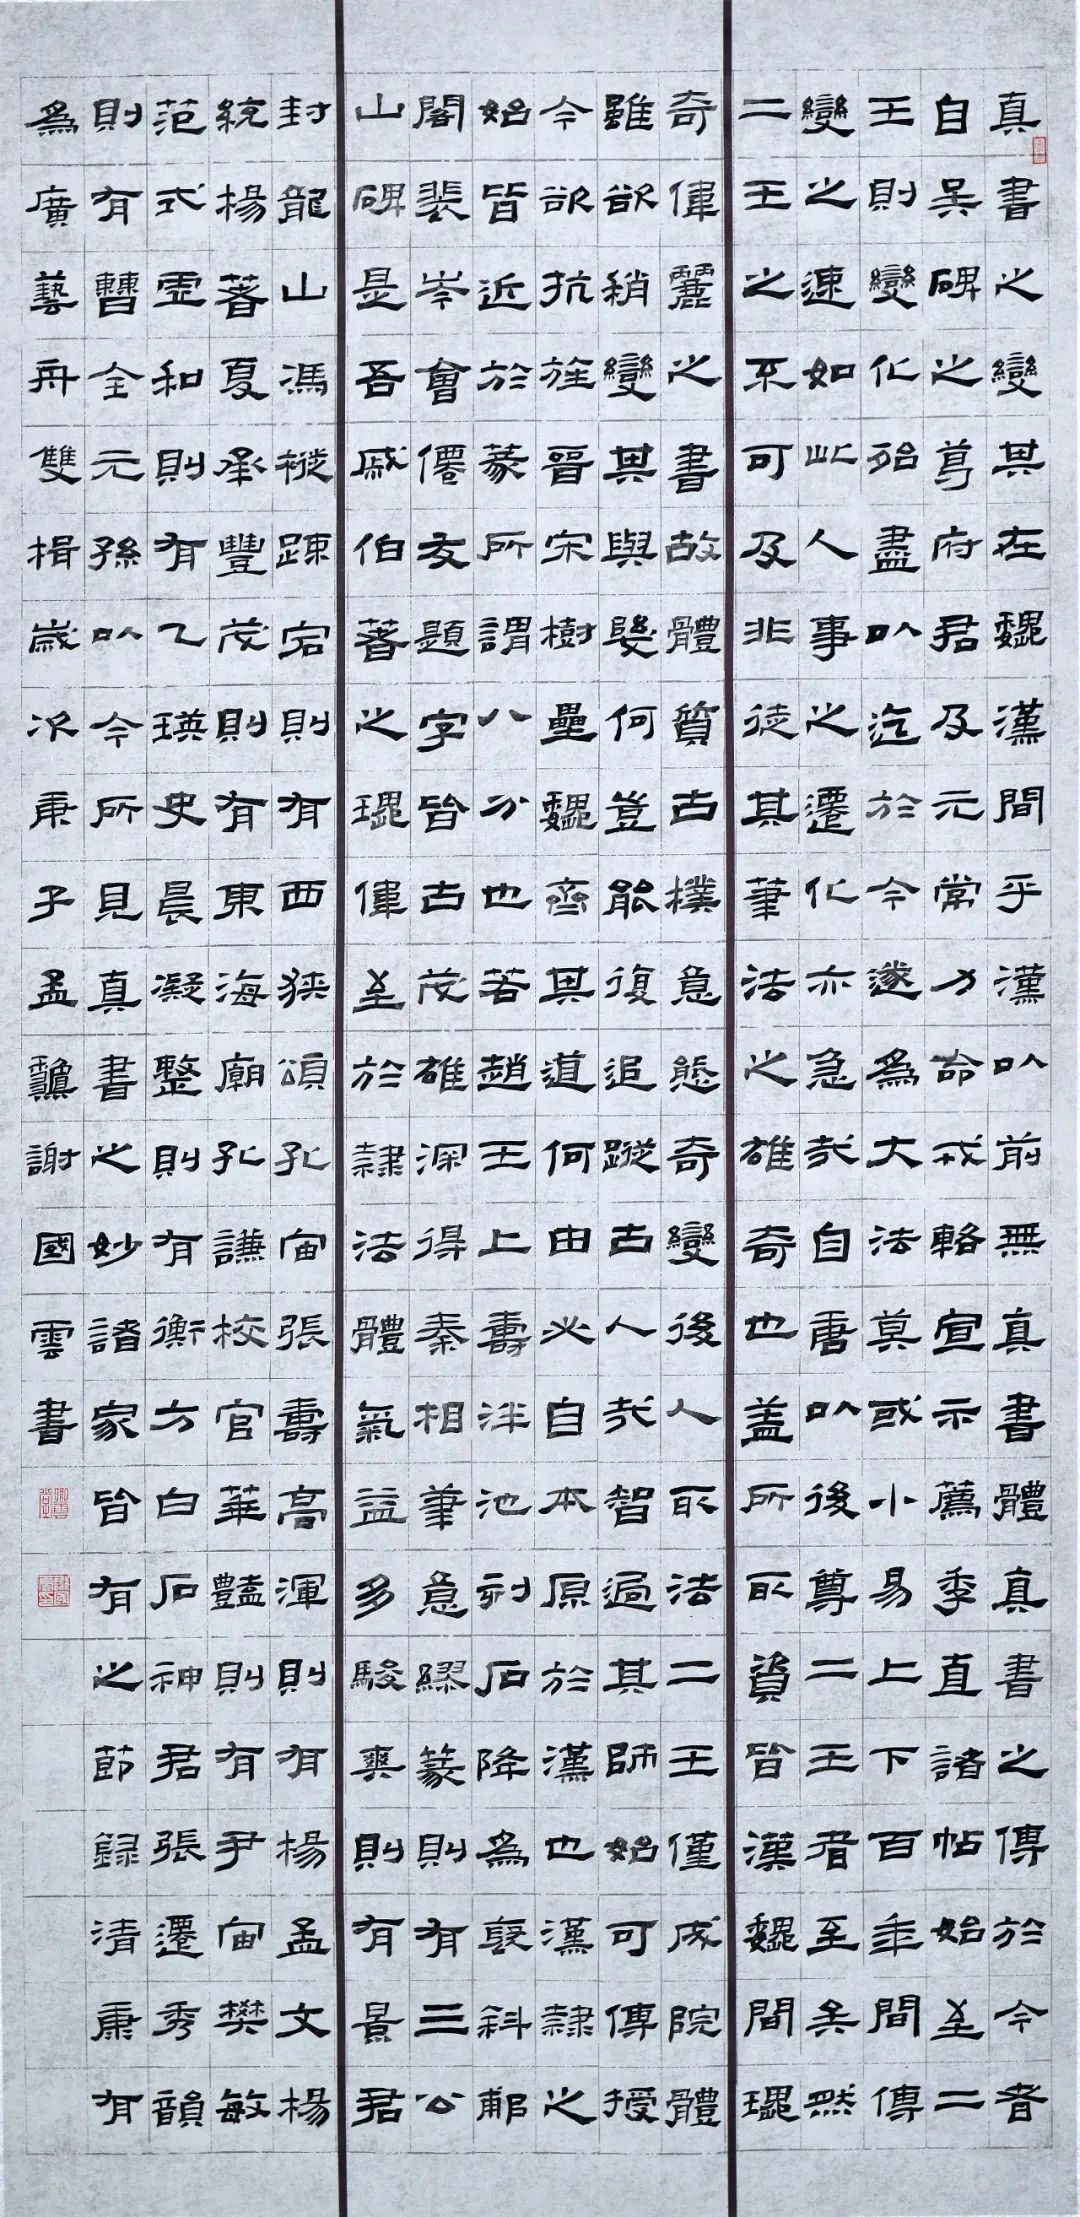 真書之變其在魏漢間乎漢以前無真書體真書之傳於今者
自吳碑之葛府君及元常力命戎輅宣示薦季直諸帖始至二
王則變化殆盡以迄於今遂為大法莫或小易上下百年間傳
變之速如此人事之遷化亦急哉自唐以後尊二王者至矣然
二王之不可及非徒其筆法之雄奇也蓋所取資皆漢魏間瑰
奇偉麗之書故體質古樸意態奇變後人取法二王僅成院體
雖欲稍變其與幾何豈能復追蹤古人哉智過其師始可傳授
今欲抗旌晉宋樹壘魏齊其道何由必自本原於漢也漢隸之
始皆近於篆所謂八分也若趙王上壽泮池刻石降為褒斜郙
閣裴岑會僊友題字皆古茂雄深得秦相筆意繆篆則有三公
山碑是吾戚伯著之瑰偉至於隸法體氣益多駿爽則有景君
封龍山馮疎宕則有西狹頌孔宙張壽高渾則有楊孟文楊
統楊著夏承豐茂則有東海廟孔謙校官華豔則有尹宙樊敏
范式虛和則有乙瑛史晨凝整則有衡方白石神君張遷秀韻
則有曹全元孫以今所見真書之妙諸家皆有之節錄清康有
為廣藝舟雙楫歲次庚子孟龝謝國雲書